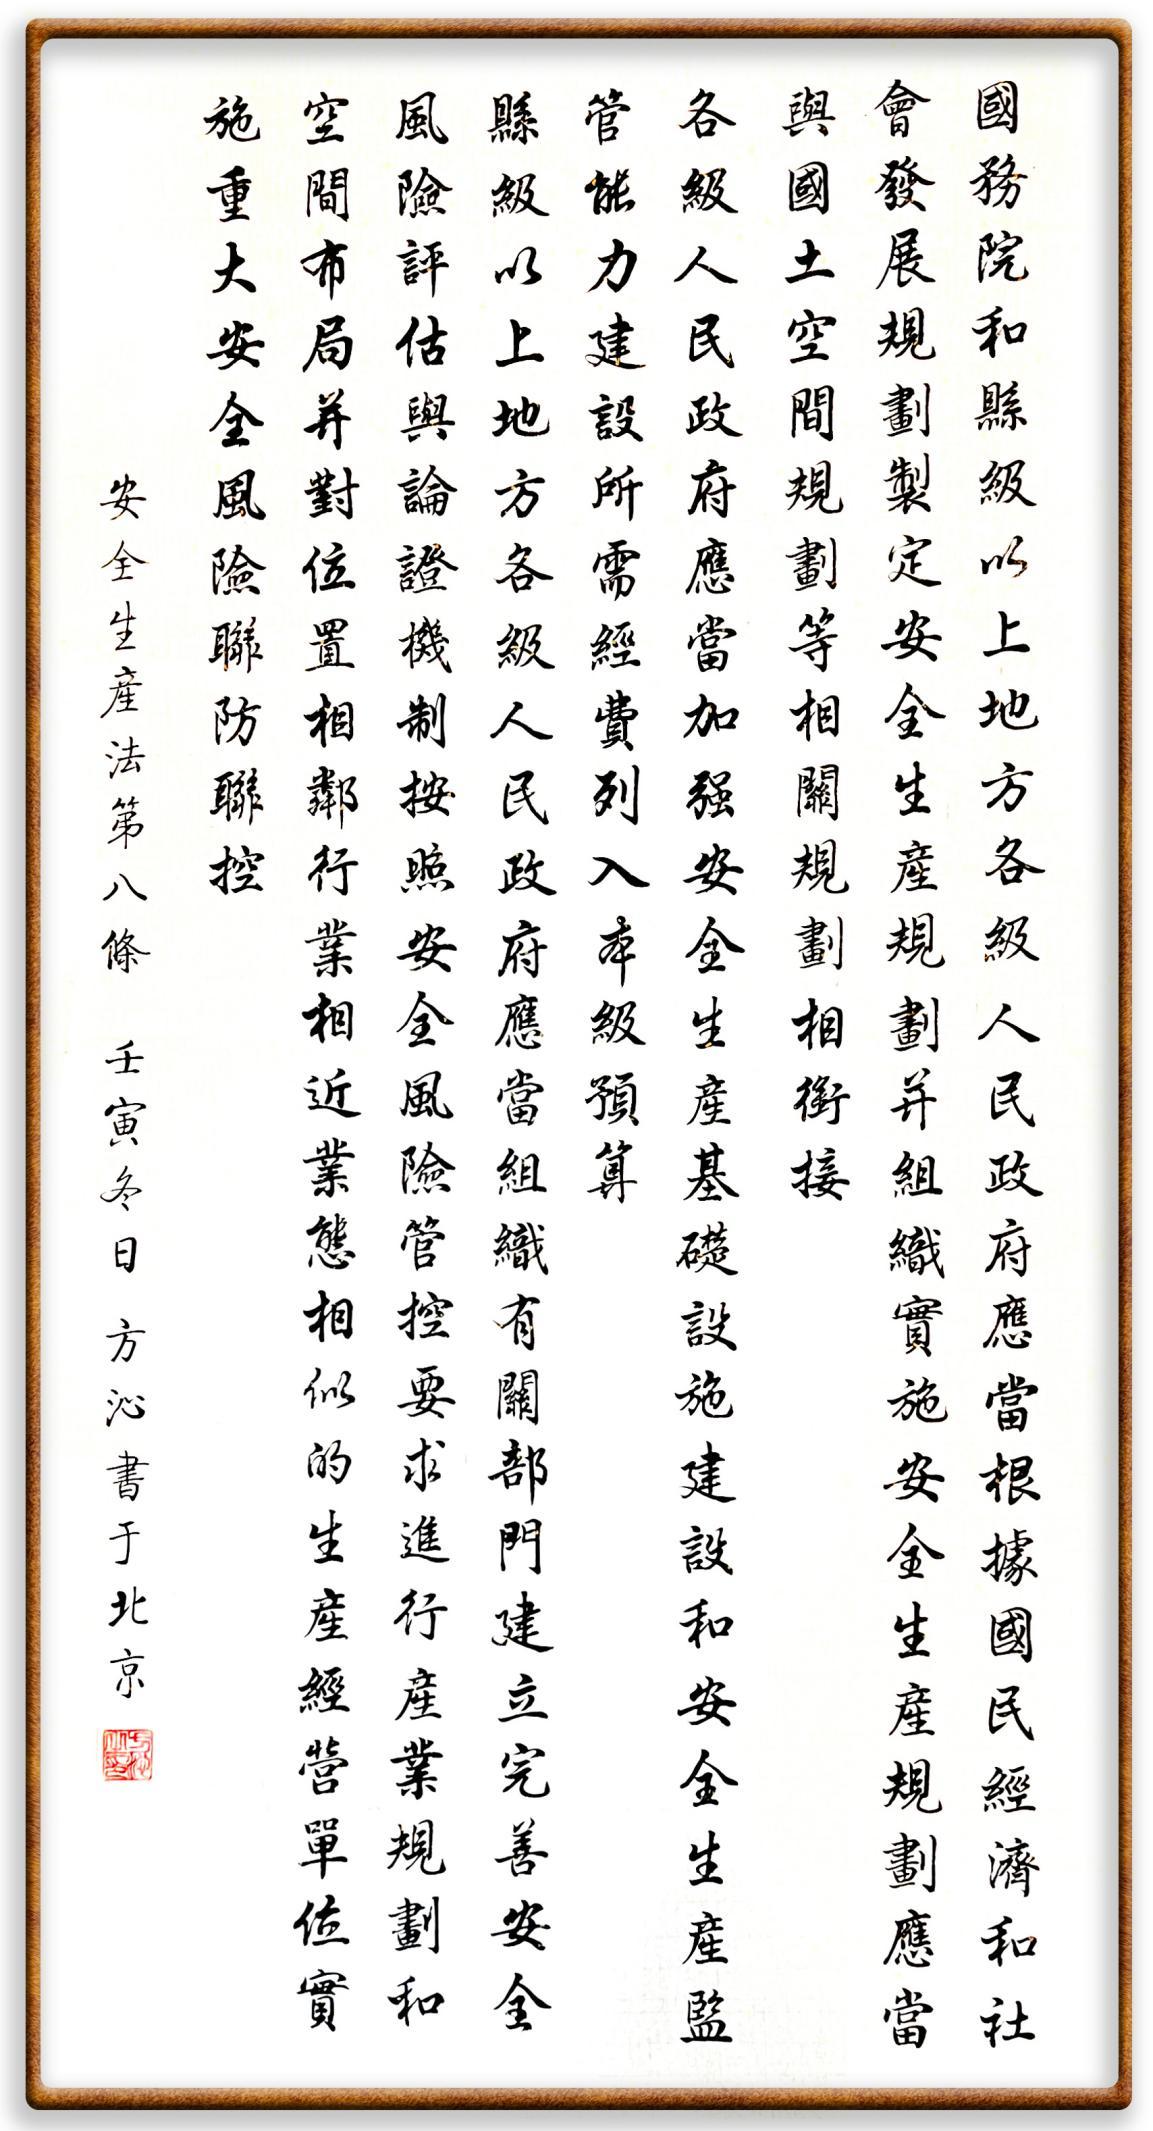 國務院和縣級以上地方各級人民政府應當根據國民經濟和社
會發展規劃製定安全生產規劃并組織實施安全生產規劃應當
與國土空間規劃等相關規劃相銜接
各級人民政府應當加强安全生產基礎設施建設和安全生產監
管能力建設所需經費列入本級預算
縣級以上地方各級人民政府應當組織有關部門建立完善安全
風險評估與論證機制按照安全風險管控要求進行產業規劃和
空間布局并對位置相鄰行業相近業態相似的生產經營單位實
施重大安全風險聯防聯控
安全生產法第八條 壬寅冬日 方沁書于北京